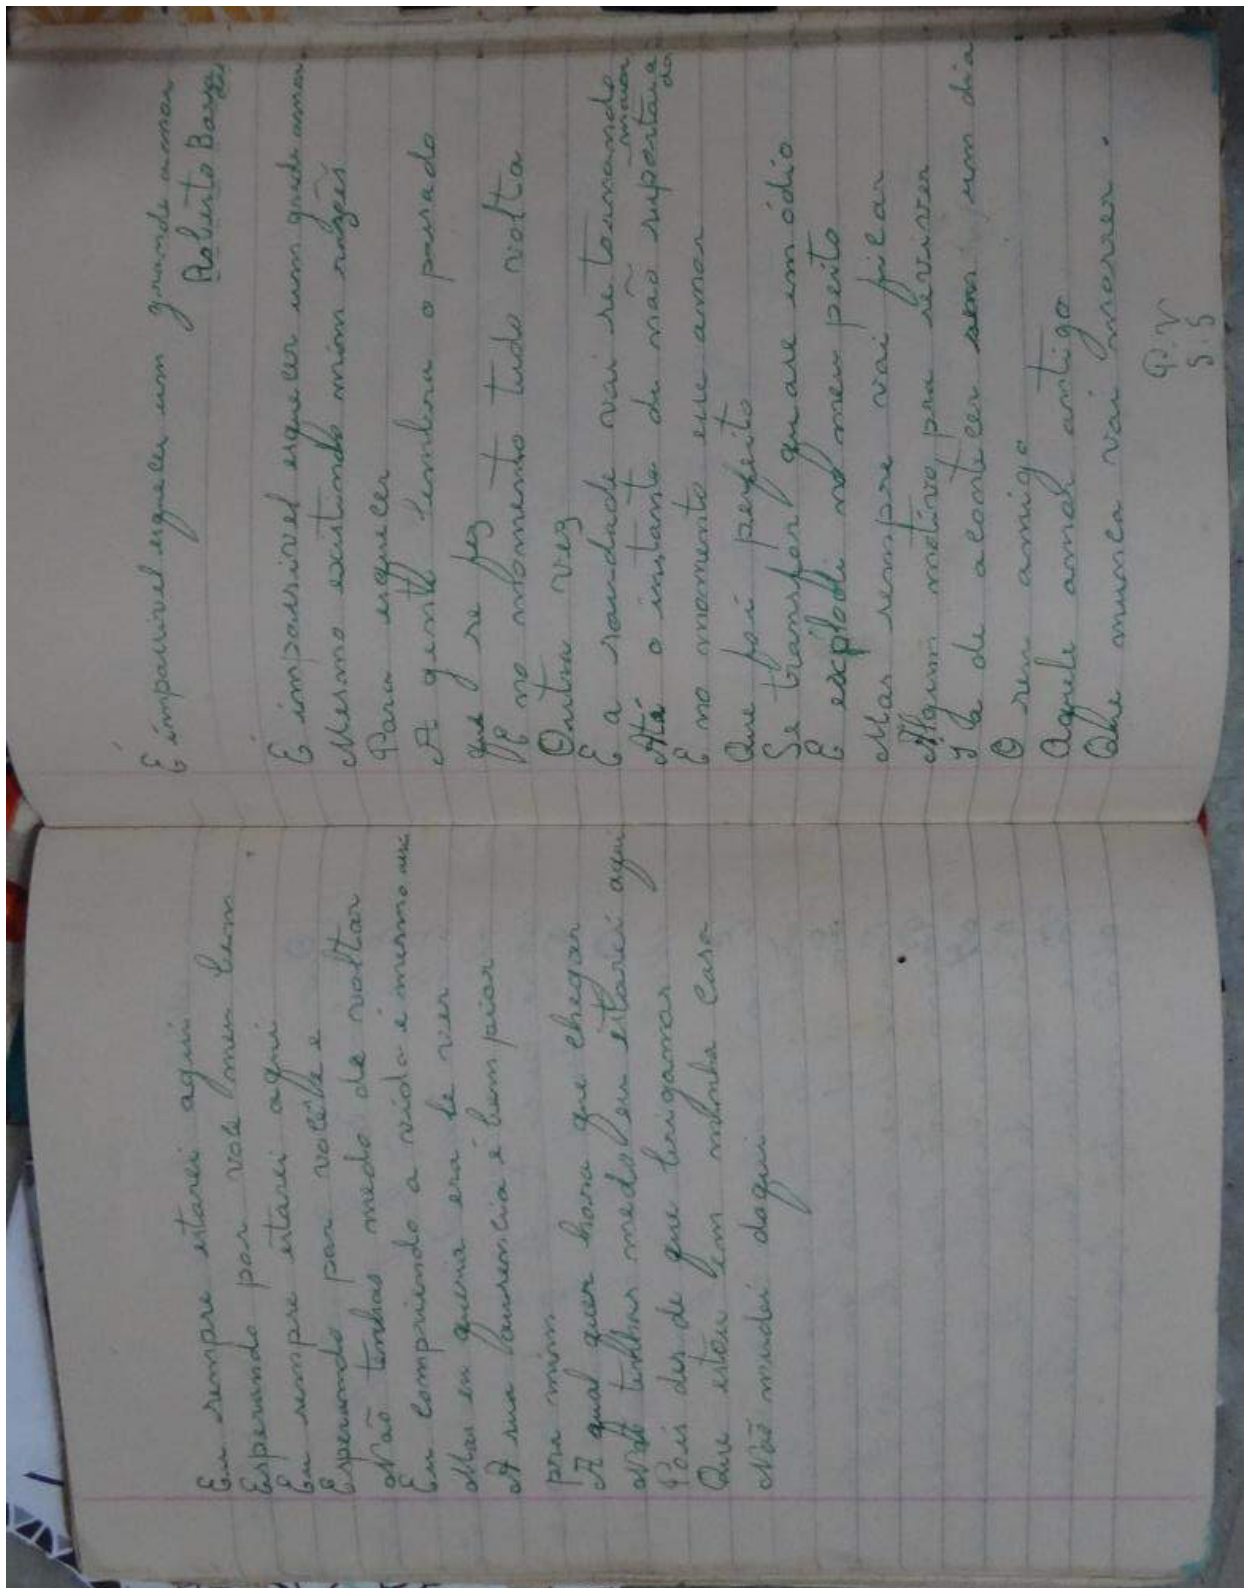 Eu sempre estarei aqui
Esperando por você meu bem
Eu sempre estarei aqui
Esperando por você e
Não tenhas medo de voltar
Eu compriendo a vida é mesmo
Mas eu queria era te ver
A sua ausencia é bem pior
pra mim
A qual quer hora que chegar
Não tenhas medo eu estarei aqui
Pois des de que brigamos
Que estou em minha casa
Não mudei daqui
É impossivel esquecer um grande amor
Roberto
É impossivel esquecer um grande amor
Mesmo existindo mim razões
Para esquecer
A gente lembra o passado
que se fez
E no momento tudo volta
Outra vez
E a saudade vai se tornando maior
Até o instante de não suportar
E no momento esse amor
Que foi perfeito
Se transfor quase em ódio
E explodi no meu peito
Mas sempre vai ficar
Algum motivo pra reviver
I a de acontecer sem um dia
O seu amigo
Aquele amor antigo
Que nunca vai morrer.
P.V
S.S